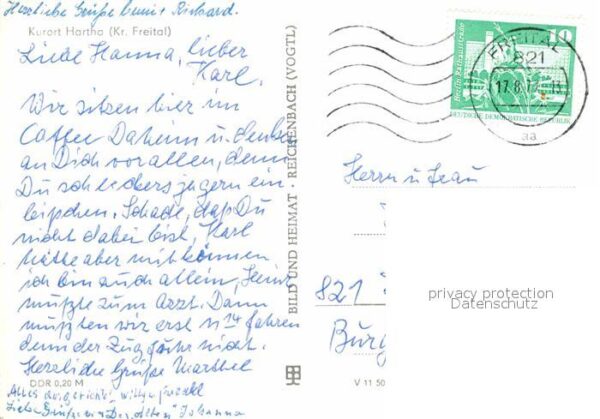 Herzliche Grüße Richard.
Kurort Hartha (Kr. Freital)
Liebe Hanna, lieber
Karl.
Wir sitzen hier im
Caffee Daheim u. denken
an Dich vor allen, denn
Du schleckerst ja gern ein
bißchen. Schade, daß Du
nicht dabei bist, Karl
hätte aber mit können
ich bin auch allein, Heinz
mußte zum Arzt. Dann
mußten wir erst ¼ fahren
denn der Zug fuhr nicht.
Herzliche Grüße
DDR 0,20 M
Alles ausgerichtet,
Liebe Grüße v. "Der Alten" Johanna
BILD UND HEIMAT · REICHENBACH (VOGTL)
V 11 50
FREITAL
821
17.8.
aa
10
Berlin, Rathausstraße
DEUTSCHE DEMOKRATISCHE REPUBLIK
Herrn u. Frau
821
Burg
privacy protection
Datenschutz